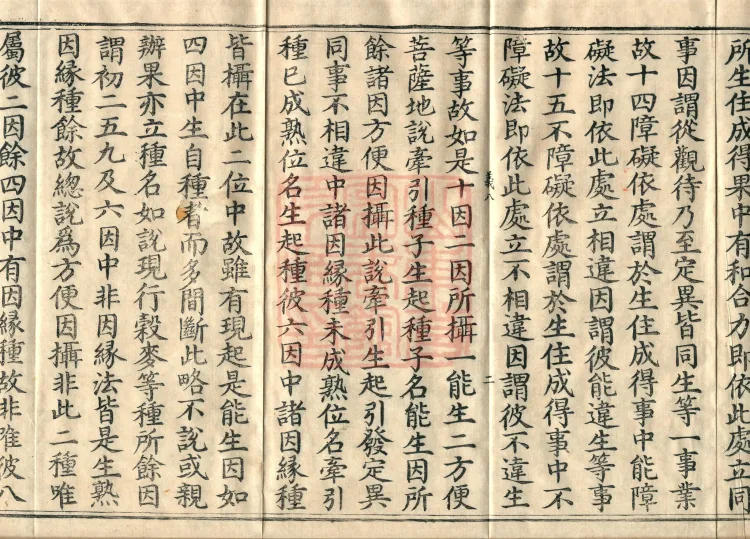 所生住成得果中有和合力即依此處立同
事因謂從觀待乃至定異皆同生等一事業
故十四障礙依處謂於生住成得事中能障
礙法即依此處立相違因謂彼能違生等事
故十五不障礙依處謂於生住成得事中不
障礙法即依此處立不相違因謂彼不違生
義八 二
等事故如是十因二因所攝一能生二方便
菩薩地說牽引種子生起種子名能生因所
餘諸因方便因攝此說牽引生起引發定異
同事不相違中諸因緣種未成熟位名牽引
種已成熟位名生起種彼六因中諸因緣種
皆攝在此二位中故雖有現起是能生因如
四因中生自種者而多間斷此略不說或親
辦果亦立種名如說現行穀麥等種所餘因
謂初二五九及六因中非因緣法皆是生熟
因緣種餘故總說爲方便因攝非此二種唯
屬彼二因餘四因中有因緣種故非唯彼八